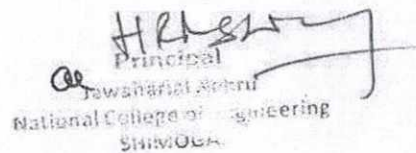 Principal
Jawaharlal Nehru
National College of Engineering
SHIMOGA